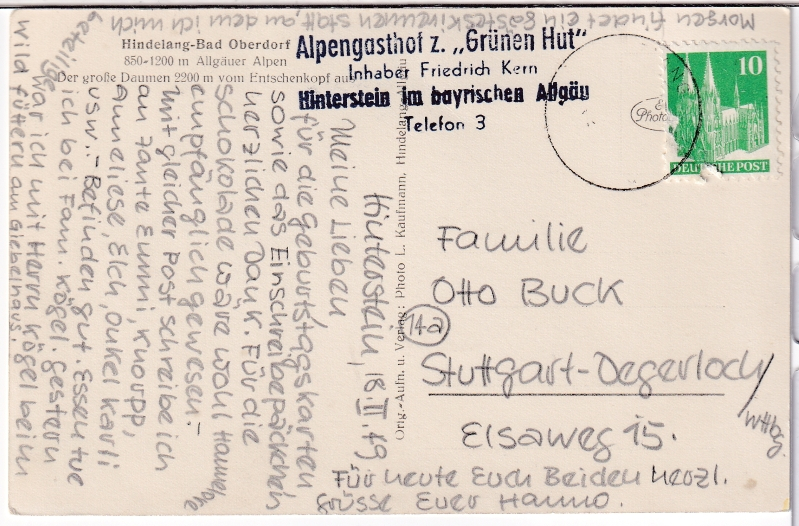 Hindelang-Bad Oberdorf
850-1200 m Allgäuer Alpen
Der große Daumen 2200 m vom Entschenkopf aus
Alpengasthof z. „Grünen Hut"
Inhaber Friedrich Kern
Hinterstein im bayrischen Allgäu
Telefon 3
10
DEUTSCHE POST
Orig.-Aufn. u. Verlag: Photo L. Kaufmann, Hindelang/Allgäu
Photo
Hinterstein, 18.II.49
Meine Lieben
für die Geburtstagskarten
sowie das Einschreibepäckchen
herzlichen Dank. Für die
Schokolade wäre wohl Hannelore
empfänglich gewesen.-
Mit gleicher Post schreibe ich
an Tante Emmi, Knorpp,
Anneliese, Elch, Onkel Karli
usw.- Befinden gut. Essen tue
ich bei Fam. Kögel. Gestern
war ich mit Herrn Kögel beim
Wild füttern am Giebelhaus.
Morgen findet ein Gästeskirennen statt, an dem ich mich
beteilige
Familie
Otto Buck
(14a)
Stuttgart-Degerloch
/Wttbg.
Elsaweg 15.
Für heute Euch Beiden herzl.
Grüsse Euer Hanno.